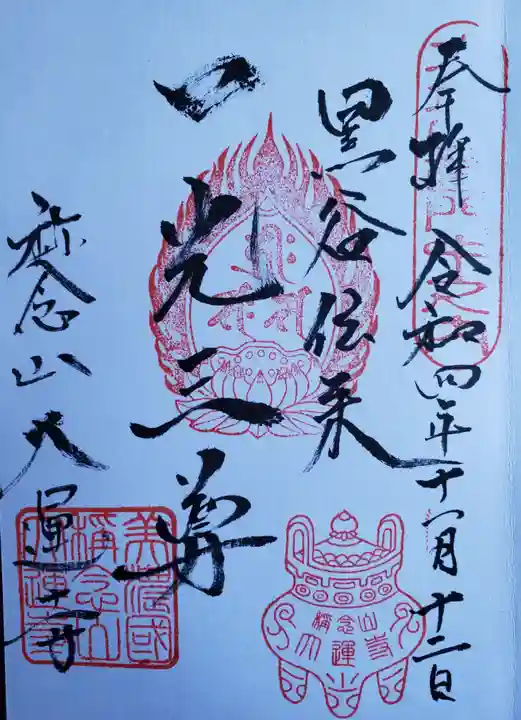 奉拝 令和四年十一月十二日
黒谷伝来
一光三尊
称念山 大運寺
美濃国
称念山
大運寺
称念山
大運寺